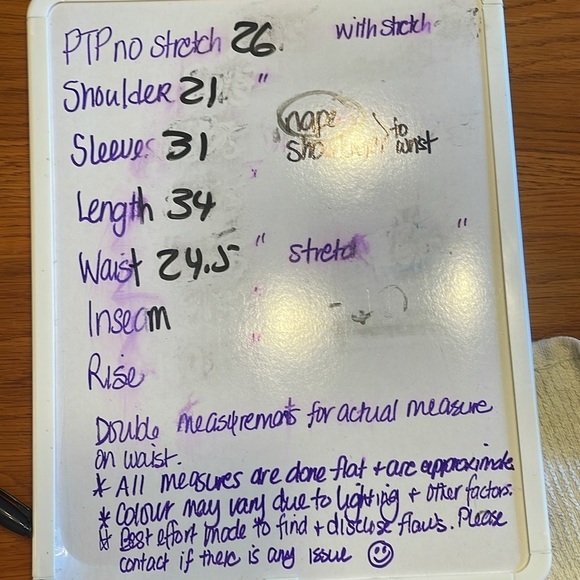 PTP no stretch 26 with stretch
Shoulder 21 "
nape to
Sleeves 31 shoulder wrist
Length 34
Waist 24.5 " stretch "
Inseam "
Rise
Double measurements for actual measure
on waist.
* All measures are done flat + are approximate
* Colour may vary due to lighting + other factors.
* Best effort made to find + disclose flaws. Please
contact if there is any issue ☺